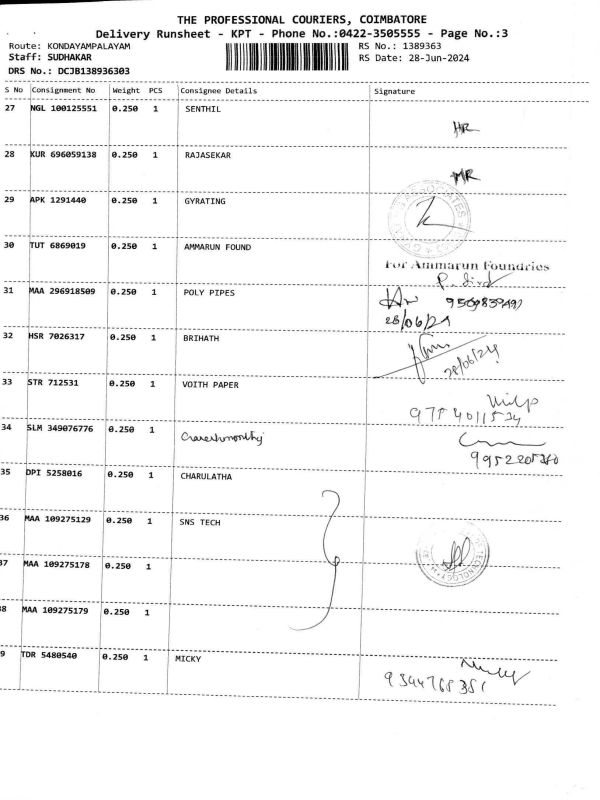 THE PROFESSIONAL COURIERS, COIMBATORE
Delivery Runsheet - KPT - Phone No.:0422-3505555 - Page No.:3
Route: KONDAYAMPALAYAM RS No.: 1389363
Staff: SUDHAKAR RS Date: 28-Jun-2024
DRS No.: DCJB138936303
S No Consignment No Weight PCS Consignee Details Signature
27 NGL 100125551 0.250 1 SENTHIL
HR
28 KUR 696059138 0.250 1 RAJASEKAR
MR
29 APK 1291440 0.250 1 GYRATING
ASSOCIATES
30 TUT 6869019 0.250 1 AMMARUN FOUND
For Ammarun Foundries
31 MAA 296918509 0.250 1 POLY PIPES
28/06/24
32 HSR 7026317 0.250 1 BRIHATH
28/06/24
33 STR 712531 0.250 1 VOITH PAPER
34 SLM 349076776 0.250 1
9952205260
35 DPI 5258016 0.250 1 CHARULATHA
36 MAA 109275129 0.250 1 SNS TECH
TECHNOLOGY
37 MAA 109275178 0.250 1
38 MAA 109275179 0.250 1
9 TDR 5480540 0.250 1 MICKY
9344768351